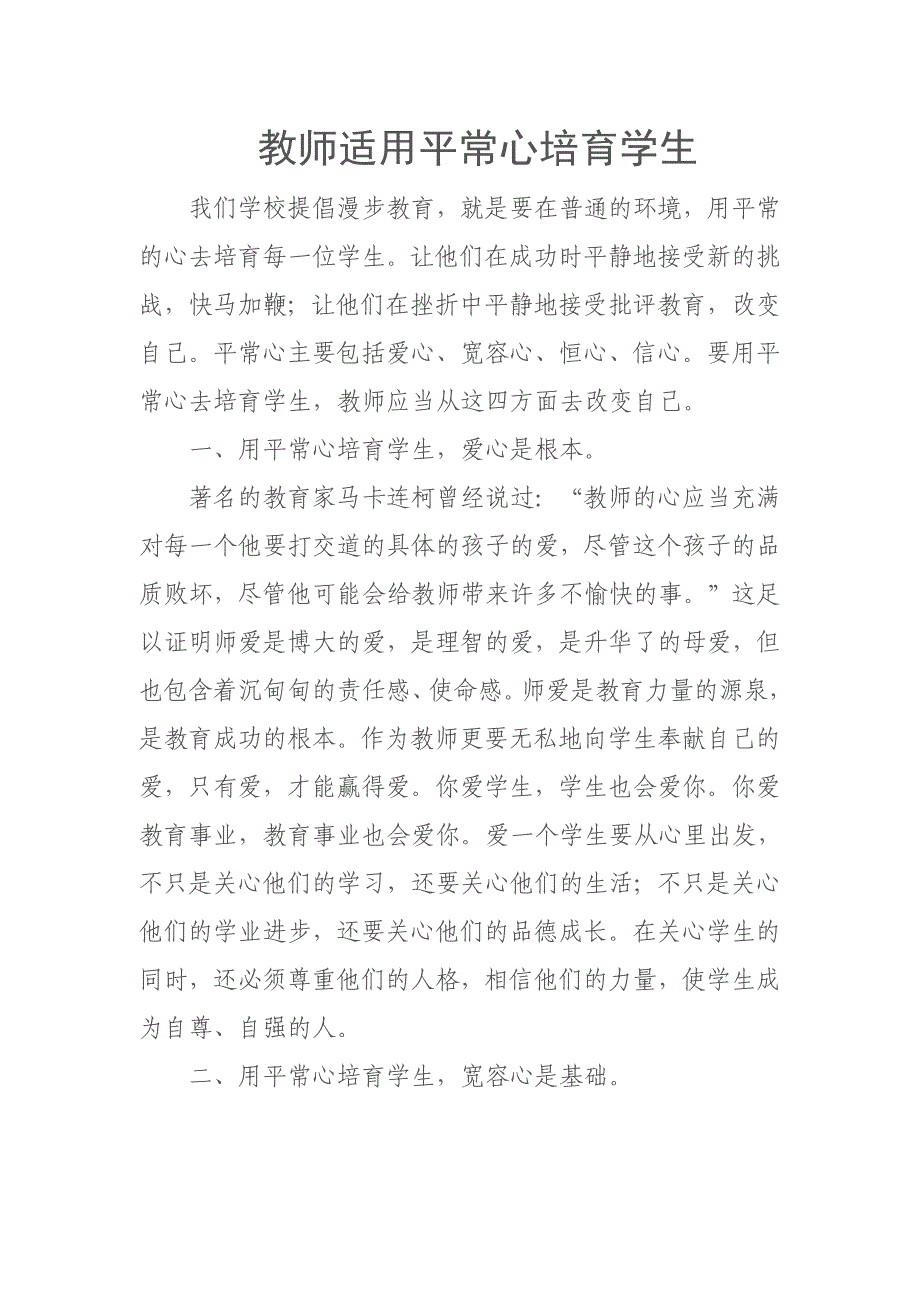 教师适用平常心培育学生
我们学校提倡漫步教育，就是要在普通的环境，用平常
的心去培育每一位学生。让他们在成功时平静地接受新的挑
战，快马加鞭；让他们在挫折中平静地接受批评教育，改变
自己。平常心主要包括爱心、宽容心、恒心、信心。要用平
常心去培育学生，教师应当从这四方面去改变自己。
一、用平常心培育学生，爱心是根本。
著名的教育家马卡连柯曾经说过：“教师的心应当充满
对每一个他要打交道的具体的孩子的爱，尽管这个孩子的品
质败坏，尽管他可能会给教师带来许多不愉快的事。”这足
以证明师爱是博大的爱，是理智的爱，是升华了的母爱，但
也包含着沉甸甸的责任感、使命感。师爱是教育力量的源泉，
是教育成功的根本。作为教师更要无私地向学生奉献自己的
爱，只有爱，才能赢得爱。你爱学生，学生也会爱你。你爱
教育事业，教育事业也会爱你。爱一个学生要从心里出发，
不只是关心他们的学习，还要关心他们的生活；不只是关心
他们的学业进步，还要关心他们的品德成长。在关心学生的
同时，还必须尊重他们的人格，相信他们的力量，使学生成
为自尊、自强的人。
二、用平常心培育学生，宽容心是基础。